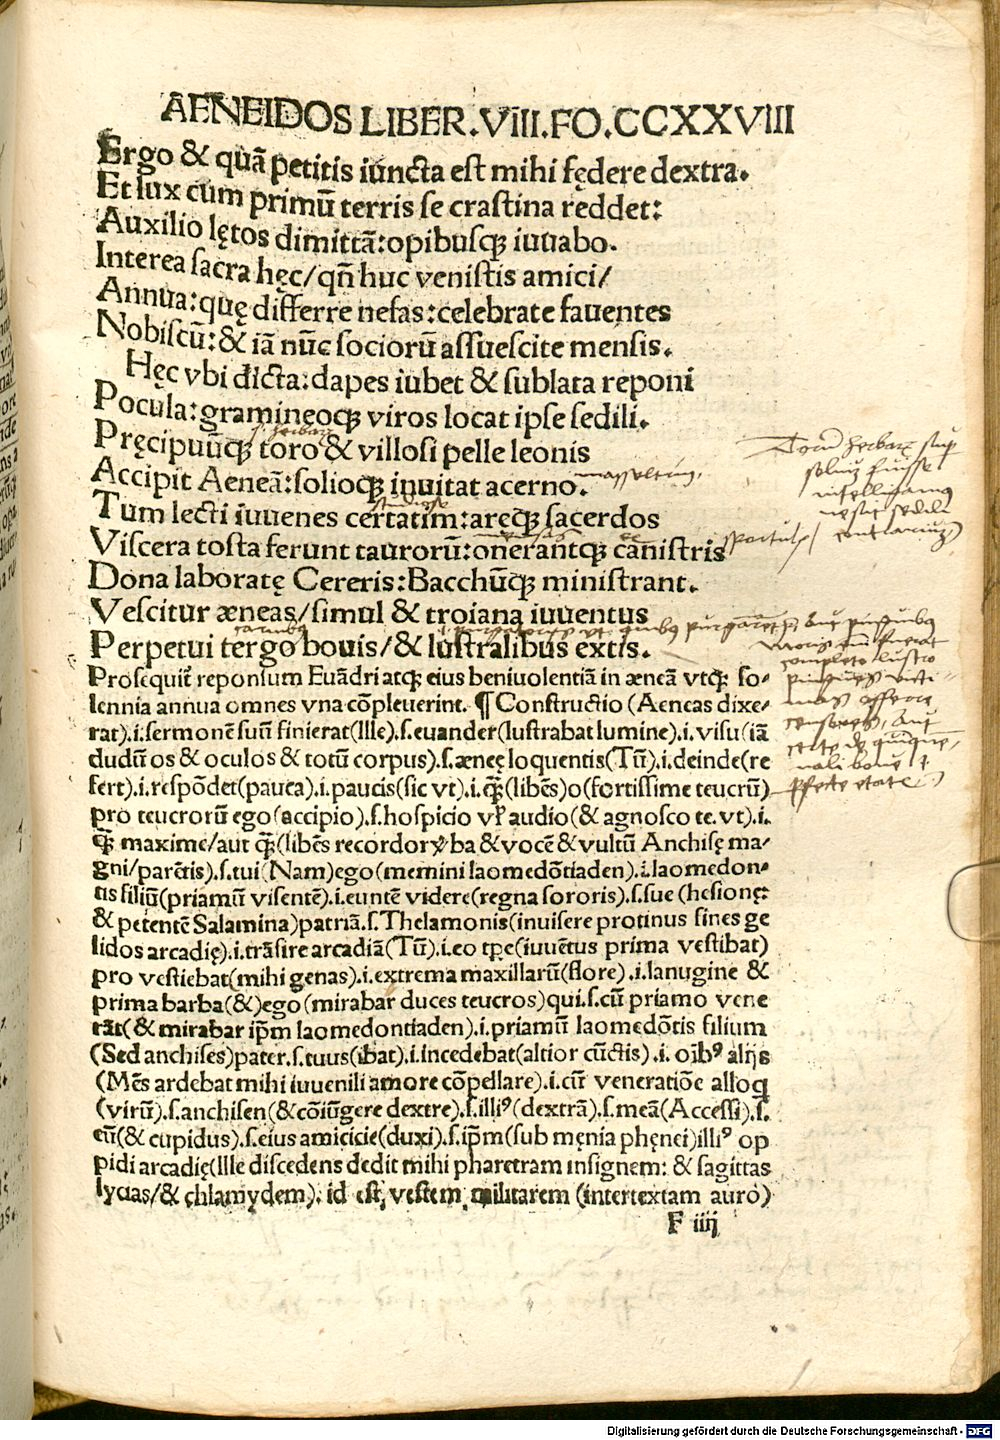 AENEIDOS LIBER.VIII.FO.CCXXVIII
Ergo & quã petitis iuncta est mihi fędere dextra.
Et lux cum primũ terris se crastina reddet:
Auxilio lętos dimittã:opibusqꝫ iuuabo.
Interea sacra hęc/qñ huc venistis amici/
Annua:quę differre nefas:celebrate fauentes
Nobiscũ:& iã nũc sociorũ assuescite mensis.
Hęc vbi dicta:dapes iubet & sublata reponi
Pocula:gramineoqꝫ viros locat ipse sedili.
Pręcipuũqꝫ toro & villosi pelle leonis
Accipit Aeneã:solioqꝫ inuitat acerno.
studiose
Tum lecti iuuenes certatim:aręqꝫ sacerdos
Viscera tosta ferunt taurorũ:onerantqꝫ canistris
Dona laboratę Cereris:Bacchũqꝫ ministrant.
Vescitur æneas/simul & troiana iuuentus
Perpetui tergo bouis/& lustralibus extis.
Prosequit̃ reponsum Euãdri atqꝫ eius beniuolentiã in æneã vtqꝫ so-
lennia annua omnes vna cõpleuerint. ¶ Constructio (Aeneas dixe-
rat).i.sermonẽ suũ finierat(Ille).s.euander(lustrabat lumine).i.visu(iã
dudũ os & oculos & totũ corpus).s.æneę loquentis(Tũ).i.deinde(re
fert).i.respõdet(pauca).i.paucis(sic vt).i.qꝫ̃(libẽs)o(fortissime teucrũ)
pro teucrorũ ego(accipio).s.hospicio vł audio(& agnosco te.vt).i.
qꝫ̃ maxime/aut qꝫ̃(libẽs recordor)v̉ba & vocẽ & vultũ Anchisę ma-
gni/parẽtis).s.tui(Nam)ego(memini laomedõtiaden).i.laomedon-
tis filiũ(priamũ visentẽ).i.euntẽ videre(regna sororis).s.sue (hesionę:
& petentẽ Salamina)patriã.s.Thelamonis(inuisere protinus fines ge
lidos arcadię).i.trãsire arcadiã(Tũ).i.eo tp̃e(iuuẽtus prima vestibat)
pro vestiebat(mihi genas).i.extrema maxillarũ(flore).i.lanugine &
prima barba(&)ego(mirabar duces teucros)qui.s.cũ priamo vene
rãt(& mirabar ip̃m laomedontiaden).i.priamũ laomedõtis filium
(Sed anchises)pater.s.tuus(ibat).i.incedebat(altior cũctis).i. oĩb⁹ alijs
(Mẽs ardebat mihi iuuenili amore cõpellare).i.cũ veneratiõe alloq̃
(virũ).s.anchisen(& cõiũgere dextre).s.illi⁹(dextrã).s.meã(Accessi).s.
eũ(& cupidus).s.eius amicicie(duxi).s.ip̃m(sub męnia phęnei)illi⁹ op
pidi arcadię(Ille discedens dedit mihi pharetram insignem: & sagittas
lycias/& chlamydem). id est, vestem militarem (intertextam auro)
F iiij
Digitalisierung gefördert durch die Deutsche Forschungsgemeinschaft - DFG